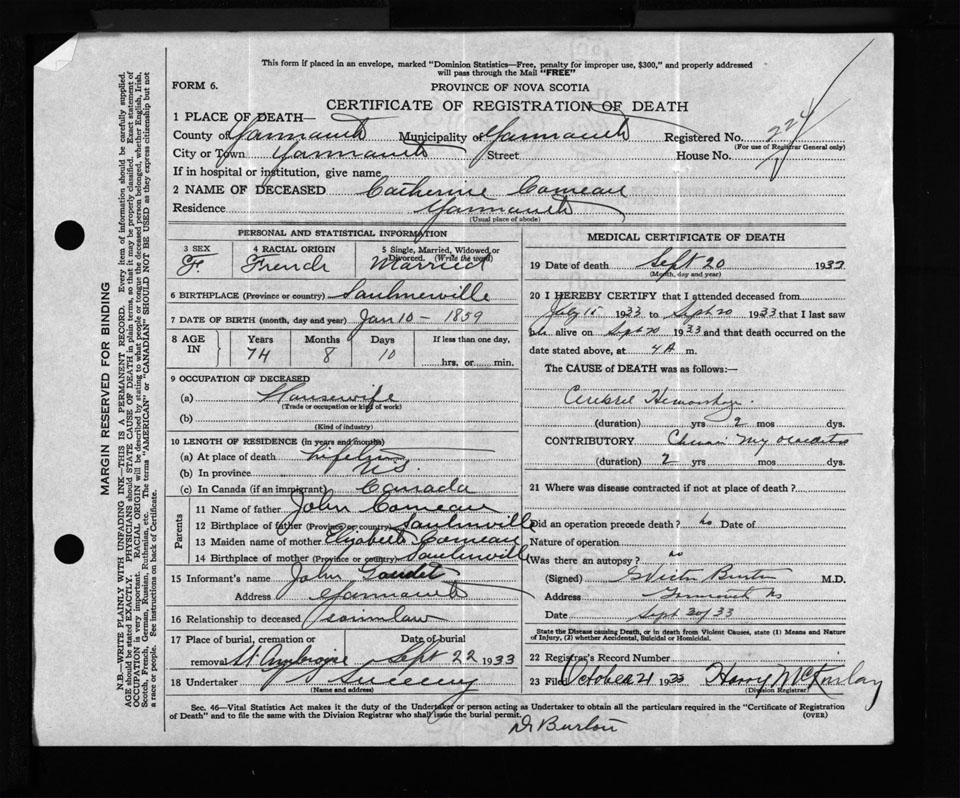 This form if placed in an envelope, marked "Dominion Statistics—Free, penalty for improper use, $300," and properly addressed
will pass through the Mail "FREE"
FORM 6.
PROVINCE OF NOVA SCOTIA
CERTIFICATE OF REGISTRATION OF DEATH
1 PLACE OF DEATH—
County of Yarmouth Municipality of Yarmouth Registered No. 224
(For use of Registrar General only)
City or Town Yarmouth Street House No.
If in hospital or institution, give name
2 NAME OF DECEASED Catherine Comeau
Residence Yarmouth
(Usual place of abode)
PERSONAL AND STATISTICAL INFORMATION
3 SEX 4 RACIAL ORIGIN 5 Single, Married, Widowed or Divorced. (Write the word)
F. French Married
6 BIRTHPLACE (Province or country) Saulnierville
7 DATE OF BIRTH (month, day and year) Jan 10 - 1859
8 AGE IN Years Months Days If less than one day,
74 8 10 hrs. or min.
9 OCCUPATION OF DECEASED
(a) Housewife
(Trade or occupation or kind of work)
(b)
(Kind of industry)
10 LENGTH OF RESIDENCE (in years and months)
(a) At place of death
(b) In province N S
(c) In Canada (if an immigrant) Canada
Parents
11 Name of father John Comeau
12 Birthplace of father (Province or country) Saulnville
13 Maiden name of mother Elizabeth Comeau
14 Birthplace of mother (Province or country) Saulnville
15 Informant's name John Gaudet
Address Yarmouth
16 Relationship to deceased soninlaw
17 Place of burial, cremation or removal St Ambroise Date of burial Sept 22 1933
18 Undertaker Sweeny
(Name and address)
MEDICAL CERTIFICATE OF DEATH
19 Date of death Sept 20 1933
(Month, day and year)
20 I HEREBY CERTIFY that I attended deceased from
July 1933 to Sept 20 1933 that I last saw
h alive on Sept 20 1933 and that death occurred on
date stated above, at 4 A m.
The CAUSE of DEATH was as follows:—
Cerebral Hemorrhage
(duration) yrs 2 mos dys.
CONTRIBUTORY Chronic Myocarditis
(duration) 2 yrs mos. dys.
21 Where was disease contracted if not at place of death?
Did an operation precede death? no Date of
Nature of operation
Was there an autopsy? no
(Signed) Burton M.D.
Address Yarmouth NS
Date Sept 20/33
State the Disease causing Death, or in death from Violent Causes, state (1) Means and Nature
of Injury, (2) whether Accidental, Suicidal or Homicidal.
22 Registrar's Record Number
23 Filed October 21 1933 Harry McKinlay
(Division Registrar)
Sec. 46—Vital Statistics Act makes it the duty of the Undertaker or person acting as Undertaker to obtain all the particulars required in the "Certificate of Registration
of Death" and to file the same with the Division Registrar who shall issue the burial permit. (OVER)
Dr Burton
MARGIN RESERVED FOR BINDING
N.B.—WRITE PLAINLY WITH UNFADING INK—THIS IS A PERMANENT RECORD. Every item of information should be carefully supplied.
AGE should be stated EXACTLY. PHYSICIANS should STATE CAUSE OF DEATH in plain terms, so that it may be properly classified. Exact statement of
OCCUPATION is very important. RACIAL ORIGIN will be described by stating to what people or tongue the deceased person belonged, whether English, Irish,
Scotch, French, German, Russian, Ruthenian, etc. The terms "AMERICAN" or "CANADIAN" SHOULD NOT BE USED as they express citizenship but not
a race or people. See instructions on back of Certificate.